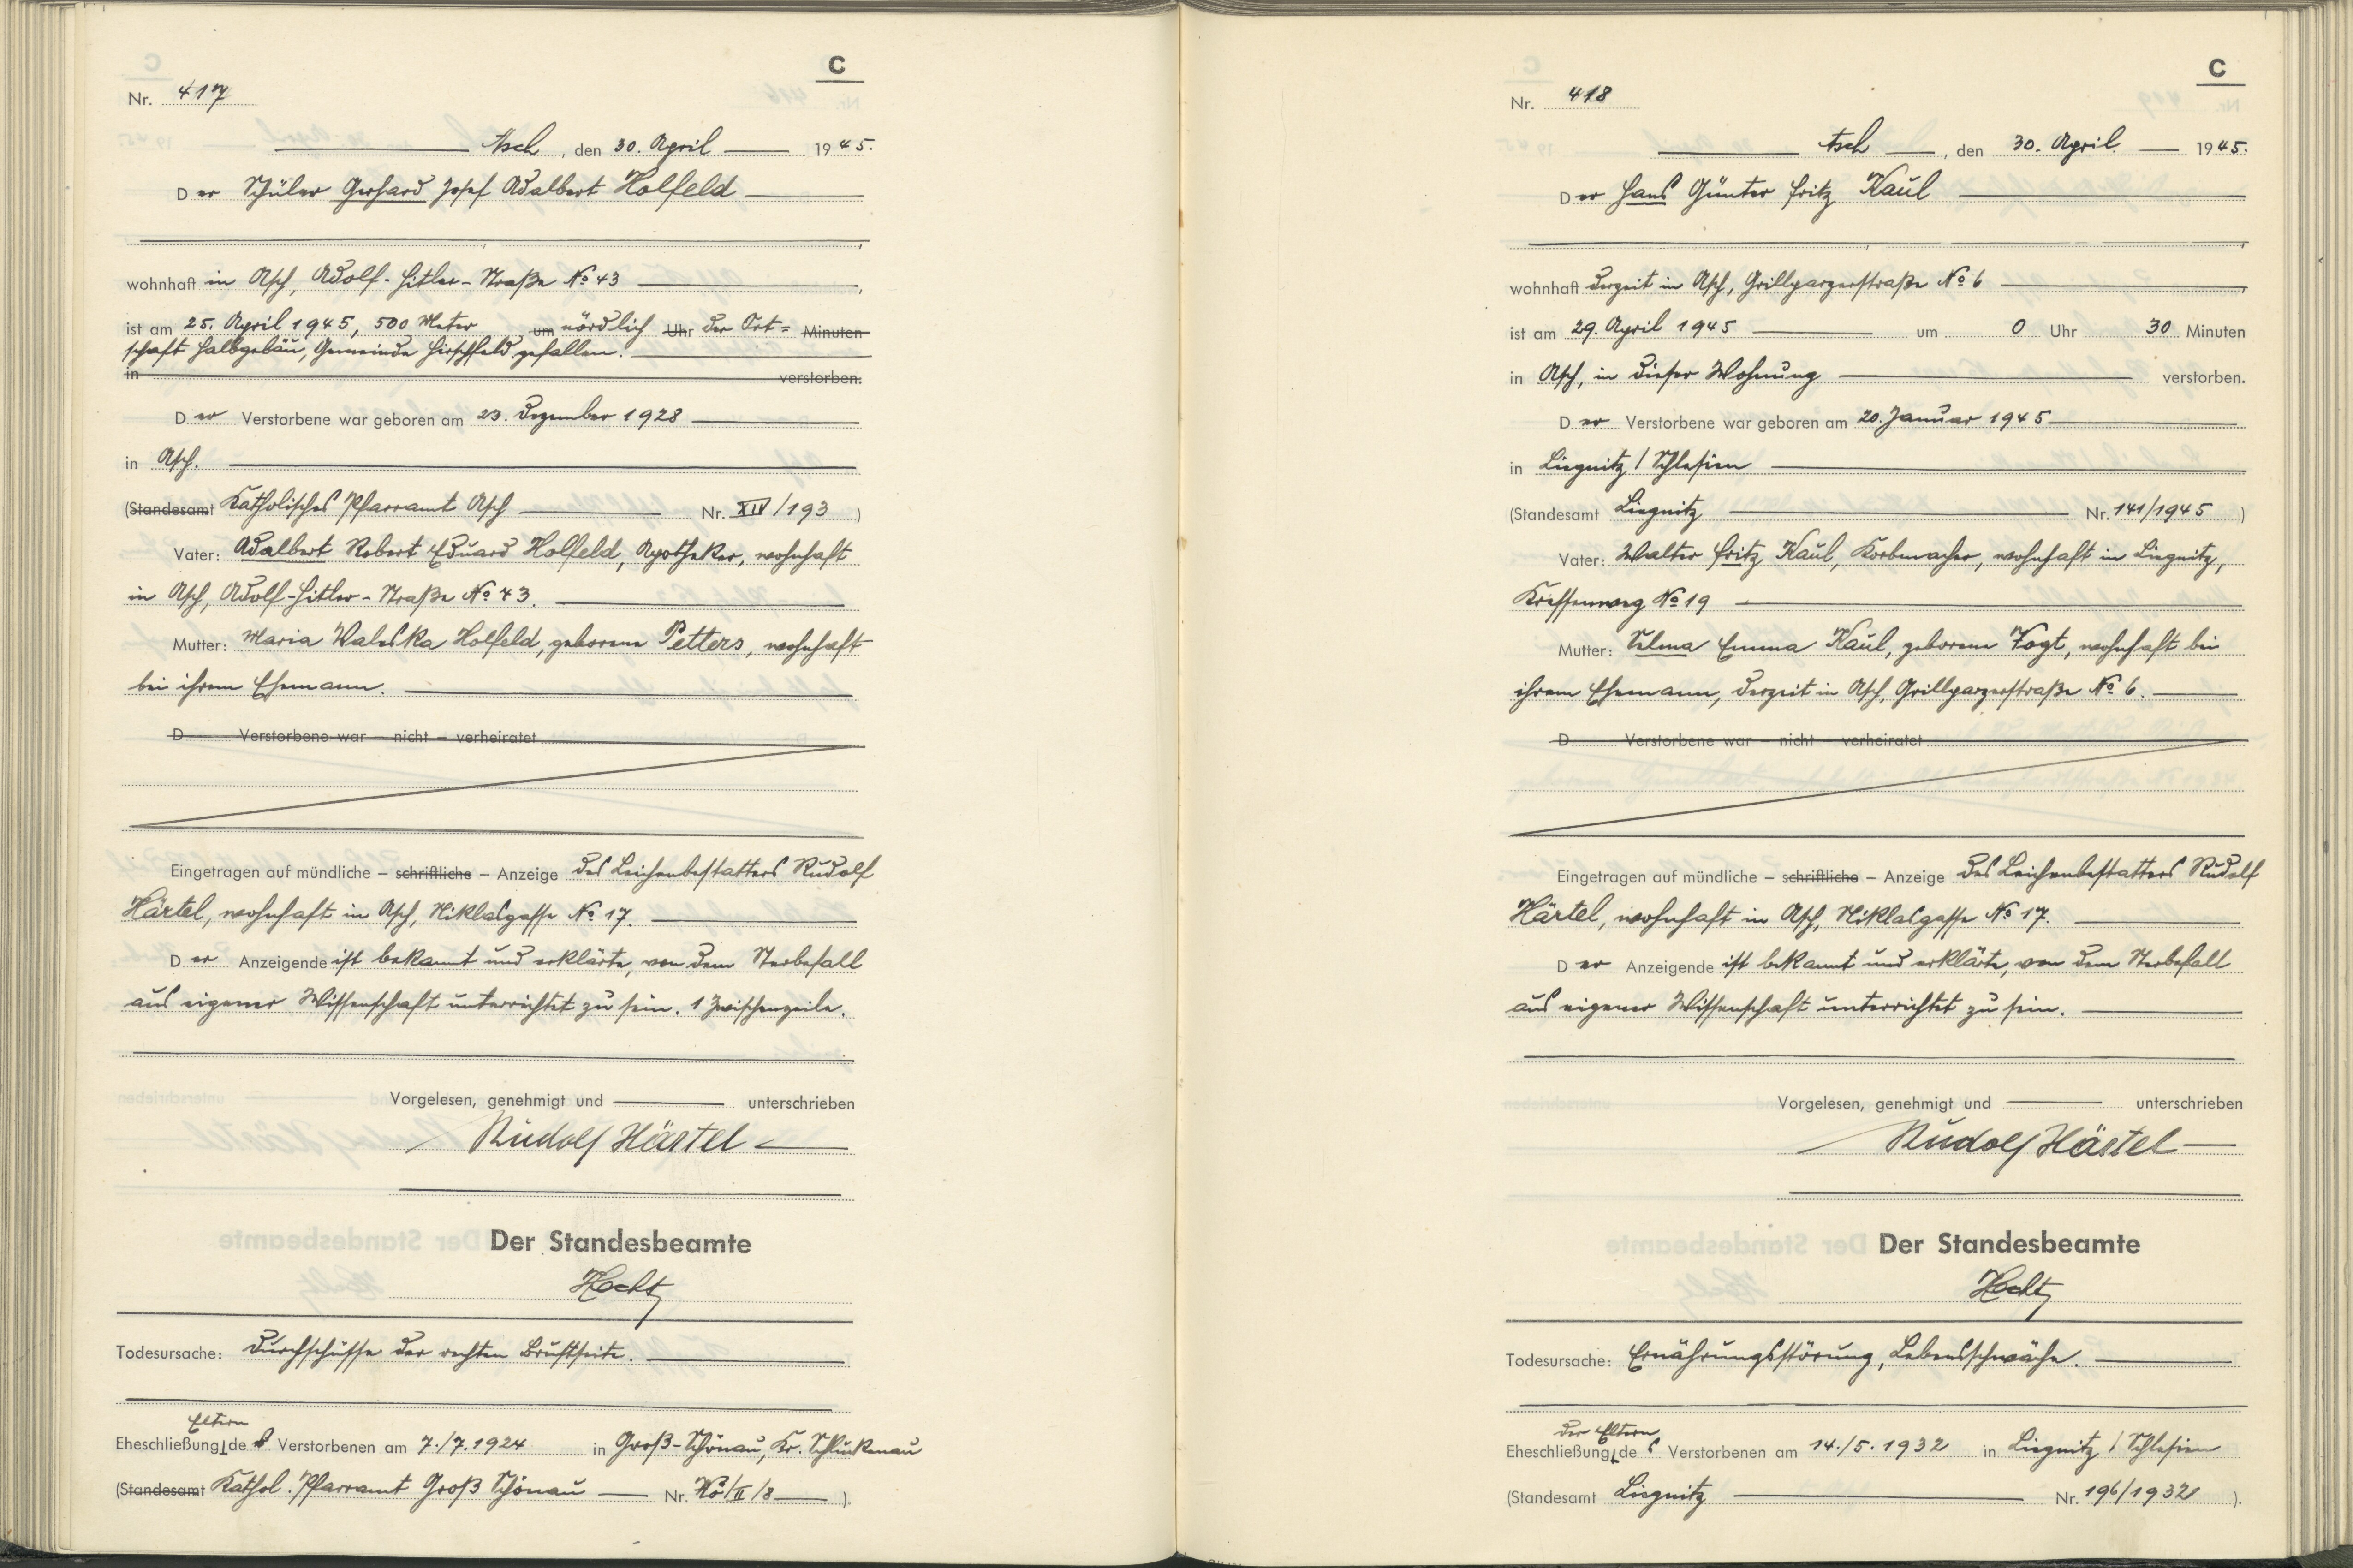 C
Nr. 417
Asch, den 30. April 1945.
Der Schüler Gerhard Josef Adalbert Holfeld
wohnhaft in Asch, Adolf-Hitler-Straße No 43,
ist am 25. April 1945, 500 Meter um nördlich Uhr der Ort= Minuten
schaft Halbgebäu, Gemeinde Hirschfeld gefallen.
in verstorben.
Der Verstorbene war geboren am 23. Dezember 1928
in Asch.
(Standesamt Katholisches Pfarramt Asch Nr. XIV/193)
Vater: Adalbert Robert Eduard Holfeld, Apotheker, wohnhaft
in Asch, Adolf-Hitler-Straße No 43.
Mutter: Maria Waleska Holfeld, geborene Petters, wohnhaft
bei ihrem Ehemann.
D Verstorbene war – nicht – verheiratet
Eingetragen auf mündliche – schriftliche – Anzeige des Leichenbestatters Rudolf
Härtel, wohnhaft in Asch, Niklasgasse No 17.
Der Anzeigende ist bekannt und erklärte, von dem Sterbefall
aus eigener Wissenschaft unterrichtet zu sein. 1 Zwischenzeile.
Vorgelesen, genehmigt und unterschrieben
Rudolf Härtel
Der Standesbeamte
Hecht
Todesursache: Durchschüsse der rechten Brustseite.
Eltern
Eheschließung de Verstorbenen am 7./7.1924 in Groß-Schönau, Kr. Schluckenau
(Standesamt Kathol. Pfarramt Groß Schönau Nr. /II/8).
C
Nr. 418
Asch, den 30. April 1945.
Der Hans Günter Fritz Kaul
wohnhaft derzeit in Asch, Grillparzerstraße No 6,
ist am 29. April 1945 um 0 Uhr 30 Minuten
in Asch, in dieser Wohnung verstorben.
Der Verstorbene war geboren am 20. Januar 1945
in Liegnitz / Schlesien
(Standesamt Liegnitz Nr. 141/1945)
Vater: Walter Fritz Kaul, Korbmacher, wohnhaft in Liegnitz,
Kressenweg No 19
Mutter: Selma Emma Kaul, geborene Vogt, wohnhaft bei
ihrem Ehemann, derzeit in Asch, Grillparzerstraße No 6.
D Verstorbene war – nicht – verheiratet
Eingetragen auf mündliche – schriftliche – Anzeige des Leichenbestatters Rudolf
Härtel, wohnhaft in Asch, Niklasgasse No 17.
Der Anzeigende ist bekannt und erklärte, von dem Sterbefall
aus eigener Wissenschaft unterrichtet zu sein.
Vorgelesen, genehmigt und unterschrieben
Rudolf Härtel
Der Standesbeamte
Hecht
Todesursache: Ernährungsstörung, Lebensschwäche.
der Eltern
Eheschließung des Verstorbenen am 14./5.1932 in Liegnitz / Schlesien
(Standesamt Liegnitz Nr. 196/1932).